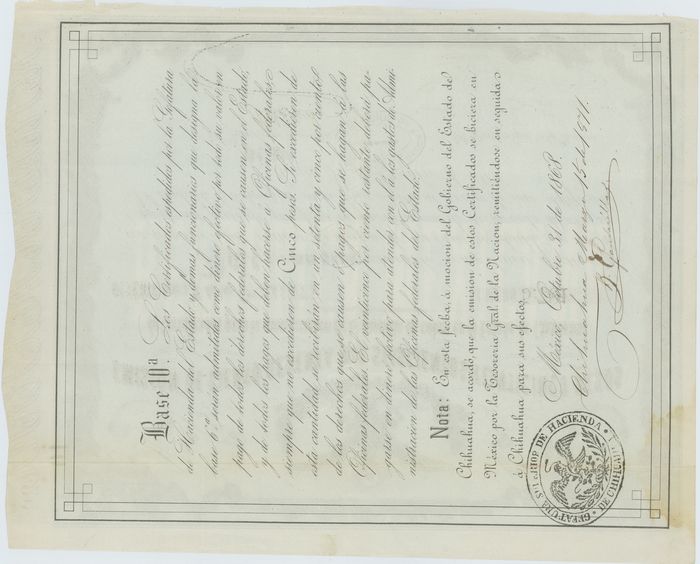 Base 10ª. Los Certificados espedidos por la Gefatura
de Hacienda del Estado y demas funcionarios que designa la
base 6ª serán admitidos como dinero efectivo por todo su valor, en
pago de todos los derechos federales que se causen en el Estado,
y de todos los pagos que deben hacerse á Oficinas federales
siempre que no excedieren de Cinco pesos. Si excedieren de
esta cantidad se recibirán en un setenta y cinco por ciento
de los derechos que se causen ó pagos que se hagan á las
Oficinas federales. El veinticinco por ciento restante, deberá pa-
garse en dinero efectivo para atender con él á los gastos de Admi-
nistracion de las Oficinas federales del Estado.
Nota: En esta fecha, á mocion del Gobierno del Estado de
Chihuahua, se acordó, que la emision de estos Certificados se hiciera en
México por la Tesoreria Gral de la Nacion, remitiéndose en seguida
á Chihuahua para sus efectos.
GEFATURA SUPERIOR DE HACIENDA
DE CHIHUAHUA
México, Octubre 31 de 1868.
Chihuahua Marzo 15 de 1871.